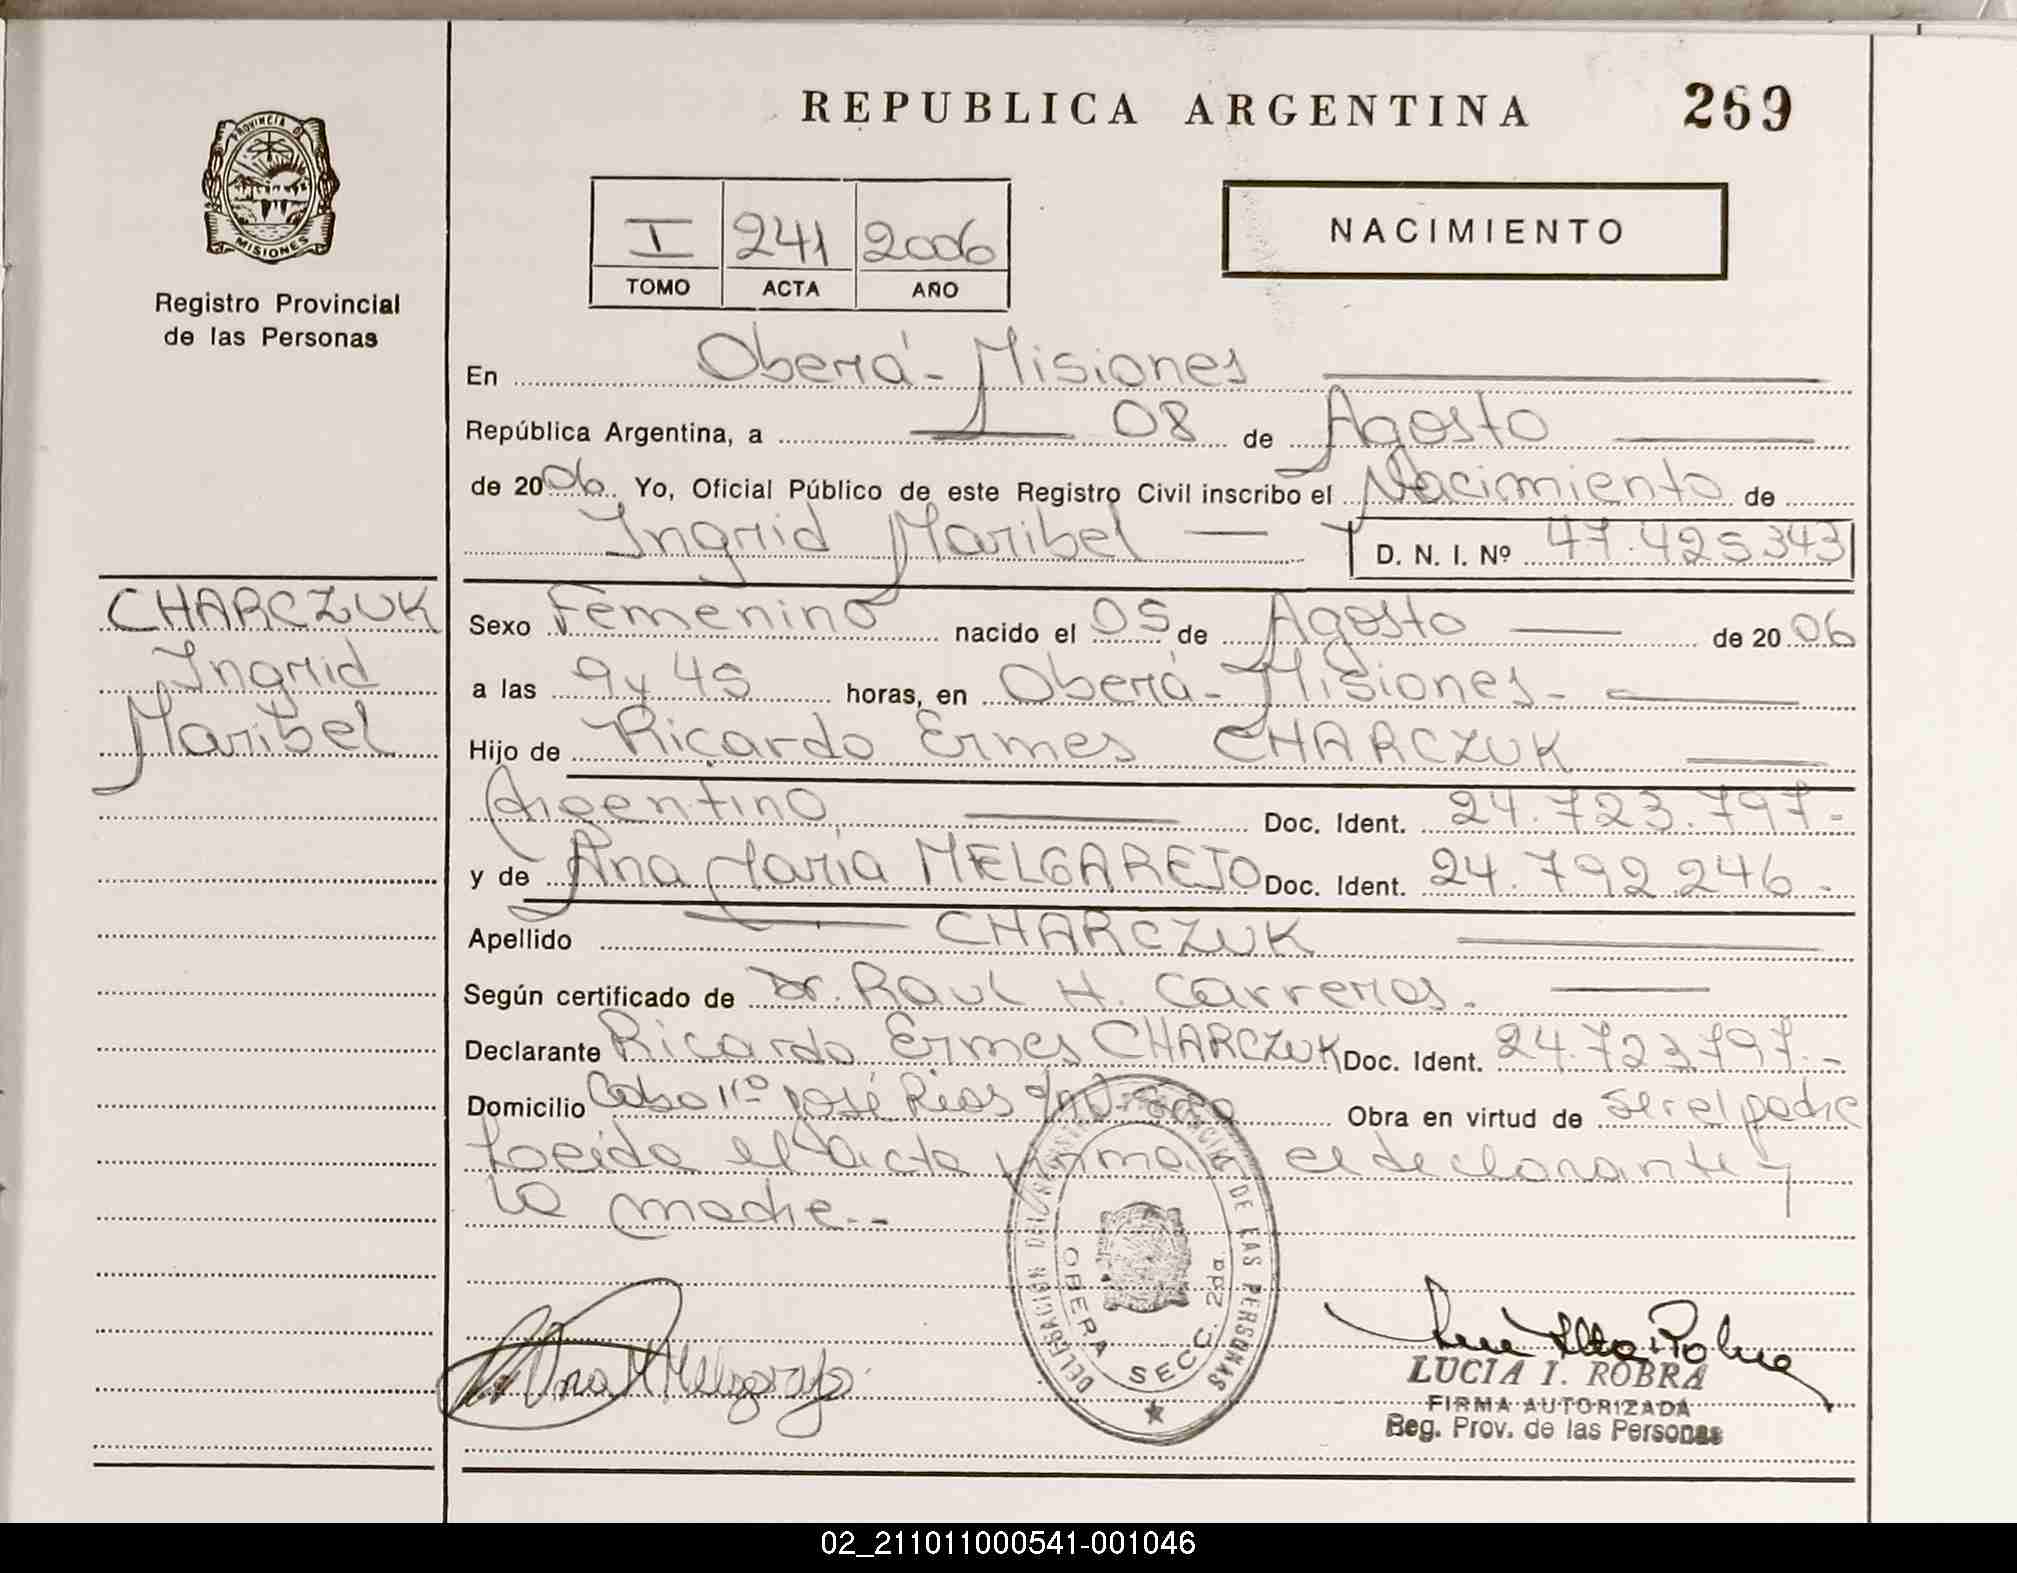 REPUBLICA ARGENTINA
269
PROVINCIA D
MISIONES
Registro Provincial
de las Personas
I 241 2006
TOMO ACTA AÑO
NACIMIENTO
En Oberá - Misiones
República Argentina, a 08 de Agosto
de 2006 Yo, Oficial Público de este Registro Civil inscribo el Nacimiento de
Ingrid Maribel D. N. I. Nº 47.425343
CHARCZUK
Ingrid
Maribel
Sexo Femenino nacido el 05 de Agosto de 2006
a las 9 y 45 horas, en Oberá - Misiones -
Hijo de Ricardo Ermes CHARCZUK
Argentino Doc. Ident. 24.723.797.-
y de Ana María MELGAREJO Doc. Ident. 24.792.246.-
Apellido CHARCZUK
Según certificado de Dr. Raul H. Carreras.
Declarante Ricardo Ermes CHARCZUK Doc. Ident. 24.723.797.-
Domicilio Cabo 1ro José Rios Obra en virtud de ser el padre
Leida el acta firman el declarante y
la madre.--
DELEGACION DEL REGISTRO PROVINCIAL DE LAS PERSONAS
OBERA SECC. 2da.
Ana M Melgarejo
LUCIA I. ROBRA
FIRMA AUTORIZADA
Reg. Prov. de las Personas
02_211011000541-001046